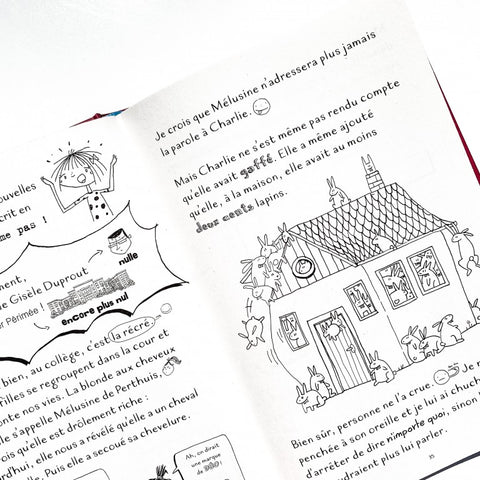 ouvelles
crit en
me pas !
ment,
e Gisèle Duprout
nulle
r Périmée !
encore plus nul
bien, au collège, c'est la récré.
illes se regroupent dans la cour et
onte nos vies. La blonde aux cheveux
lle s'appelle Mélusine de Perthuis,
ois qu'elle est drôlement riche :
urd'hui, elle nous a révélé qu'elle a un cheval
lle. Puis elle a secoué sa chevelure.
Ah, on dirait
une marque
de
Je crois que Mélusine n'adressera plus jamais
la parole à Charlie.
Mais Charlie ne s'est même pas rendu compte
qu'elle avait gaffé. Elle a même ajouté
qu'elle, à la maison, elle avait au moins
deux cents lapins.
Bien sûr, personne ne l'a crue. Je
penchée à son oreille et je lui ai chuch
d'arrêter de dire n'importe quoi, sinon
udraient plus lui parler.